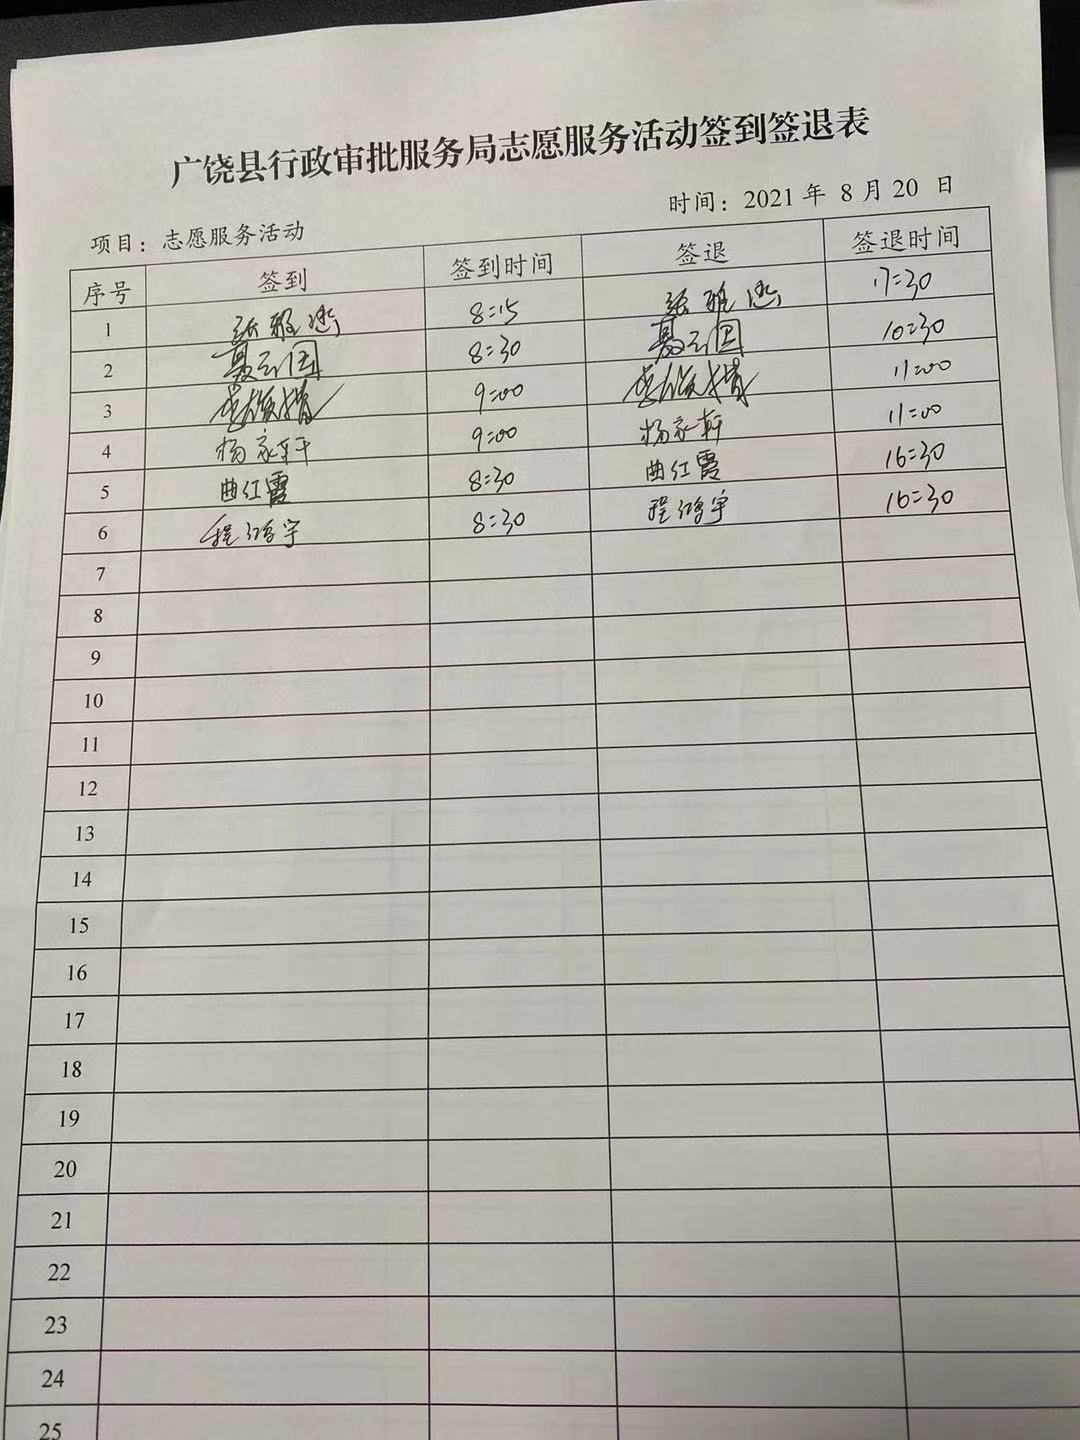 广饶县行政审批服务局志愿服务活动签到签退表
项目：志愿服务活动 时间：2021年 8月20 日
序号 签到 签到时间 签退 签退时间
1 张雅逊 8:15 张雅逊 17:30
2 聂云国 8:30 聂云国 10:30
3 9:00 11:00
4 杨家轩 9:00 杨家轩 11:00
5 曲红霞 8:30 曲红霞 16:30
6 程鸿宇 8:30 程鸿宇 16:30
7
8
9
10
11
12
13
14
15
16
17
18
19
20
21
22
23
24
25